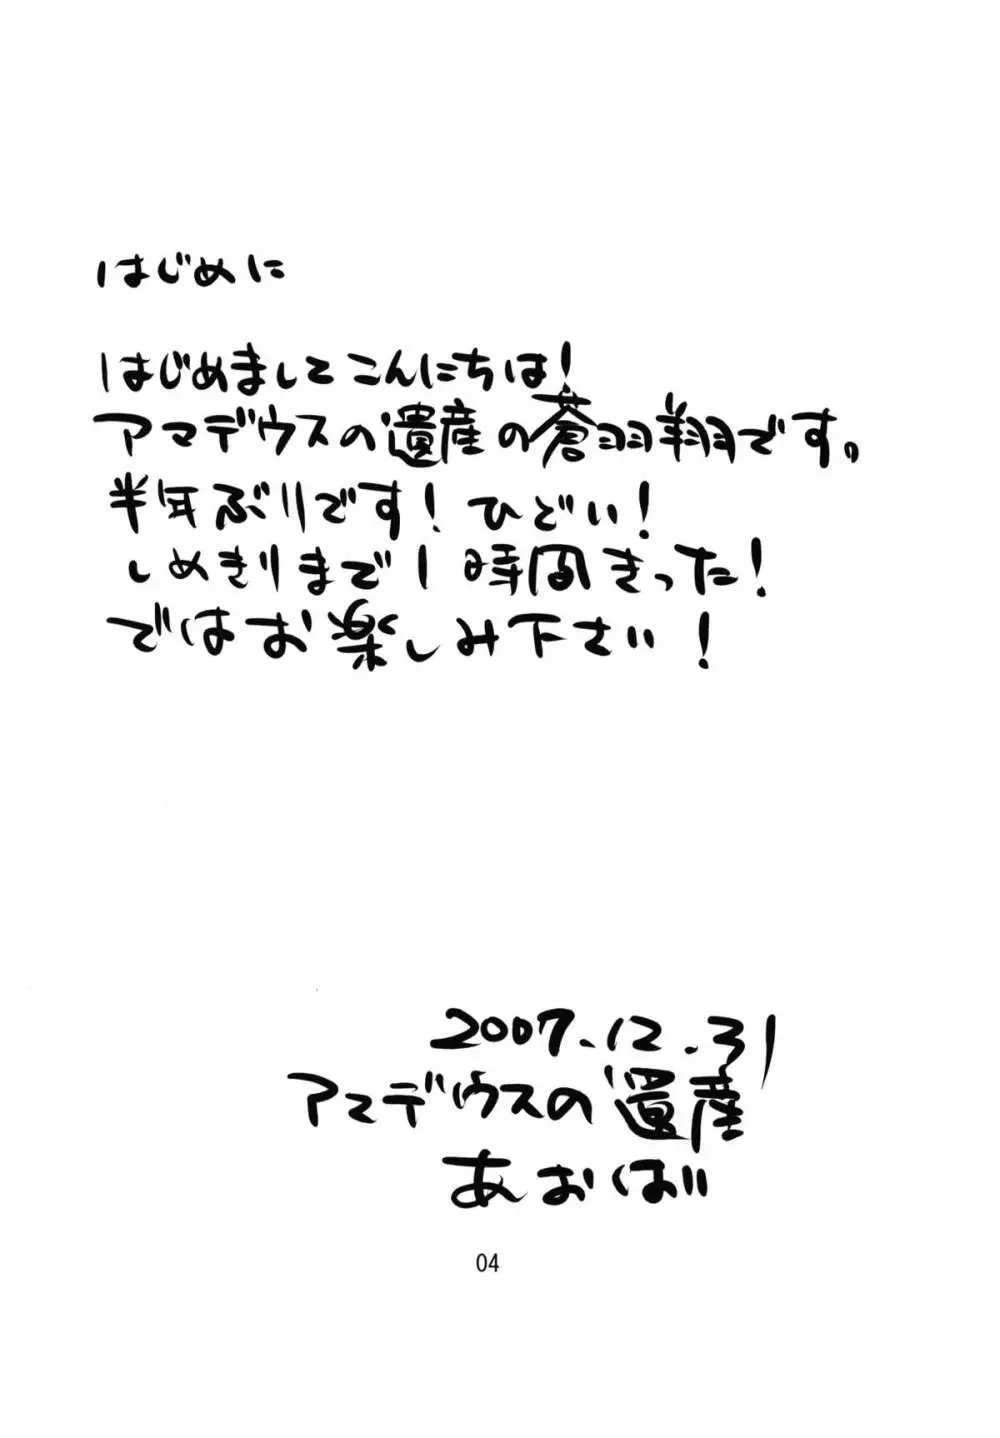 はじめに
はじめまして こんにちは!
アマデウスの遺産の蒼羽翔です。
半年ぶりです! ひどい!
しめきりまで1時間きった!
ではお楽しみ下さい!
2007.12.31
アマデウスの遺産
あおば
04